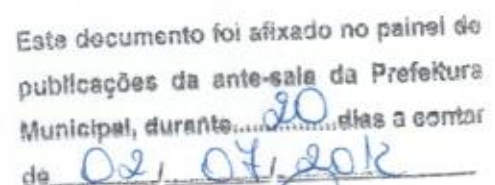 Este documento foi afixado no painel de
publicações da ante-sala da Prefeitura
Municipal, durante.....20.....dias a contar
de 02 / 07 /